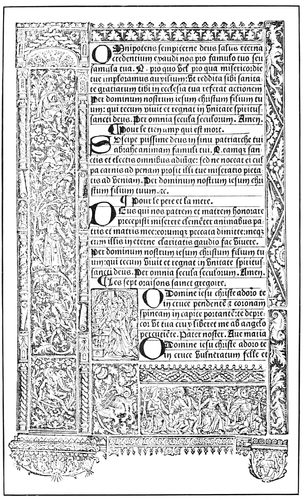 OMnipotens sempiterne deus salus eterna
credentium exaudi nos pro famulo tuo seu
famula tua. N. pro quo vel pro qua misericordie
tue imploramus auxilium: vt reddita sibi sanita
te gratiarum tibi in ecclesia tua referat actionem
Per dominum nostrum iesum christum filium tu
um: qui tecum viuit et regnat in vnitate spiritus
sancti deus. Per omnia secula seculorum. Amen.
¶ Pour le sien amy qui est mort.
SUscipe piissime deus in sinu patriarche tui
abrahe animam famuli tui. N. eamque sanc
tis et electis omnibus adiuge: sed ne noceat ei cul
pa carnis ad penam prosit illi tue miseratio pieta
tis ad veniam. Per dominum nostrum iesum chri
stum filium tuum. &c.
¶ Pour le pere et la mere.
DEus qui nos patrem et matrem honorare
precepisti miserere clementer animabus pa
tris et matris mee eorumque peccata dimitte: meque
cum illis in eterne claritatis gaudio fac viuere.
Per dominum nostrum iesum christum filium tu
um: qui tecum viuit et regnat in vnitate spiritus
sancti deus. Per omnia secula seculorum. Amen.
¶ Les sept oraisons sainct gregoire.
O Domine iesu christe adoro te
in cruce pendentem et coronam
spineam in capite portantem: te depre
cor vt tua crux liberet me ab angelo
percutiente. Pater noster. Aue maria
O Domine iesu christe adoro te
in cruce vulneratum felle et